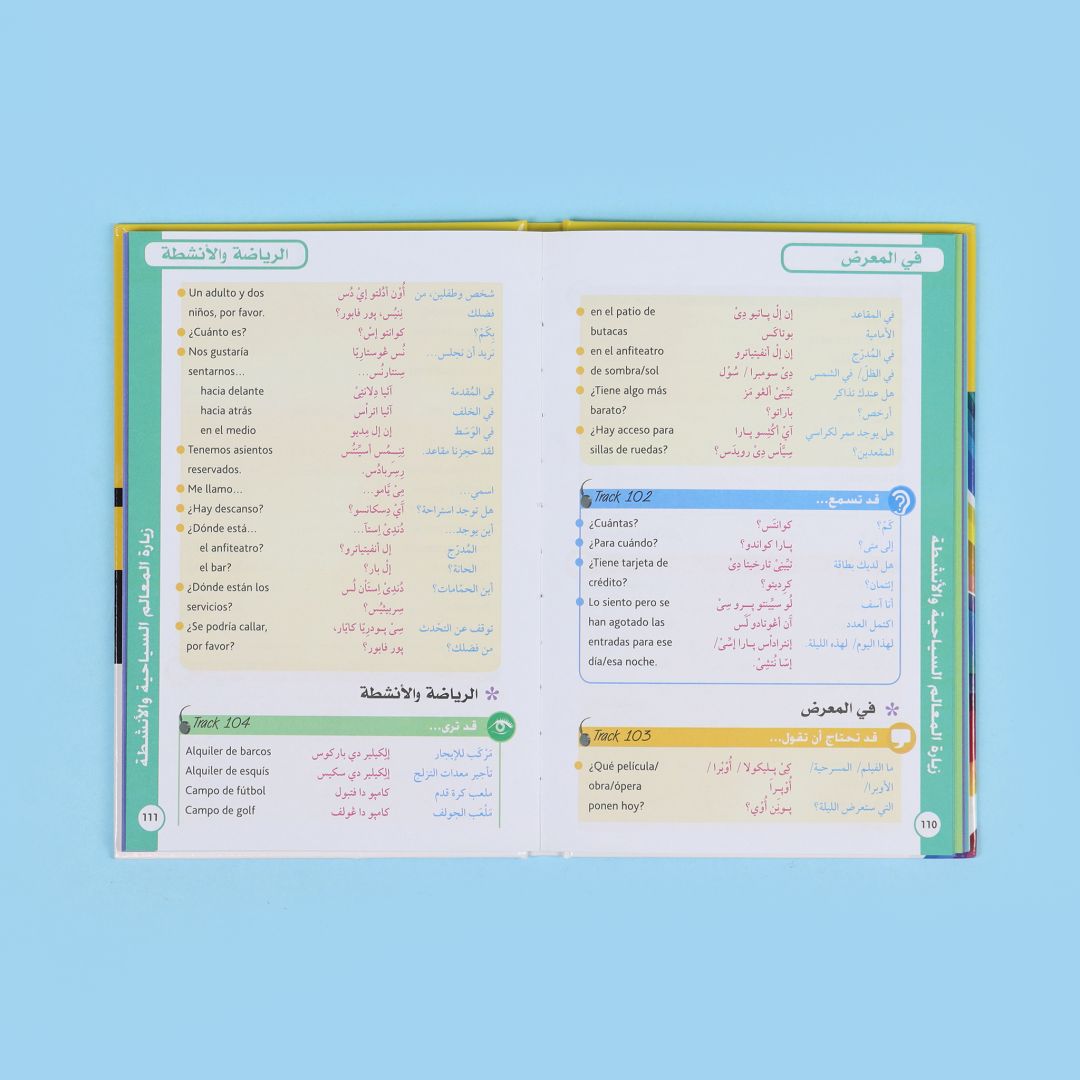 في المعرض
في المقاعد إن إلْ پـاتيو دِىْ en el patio de
الأمامية بوتاكَس butacas
في المُدرّج إن إلْ أنفيتياترو en el anfiteatro
في الظلّ/ في الشمس دِىْ سومبرا / سُوْل de sombra/sol
هل عندك تذاكر تيِّينِىْ ألغو مَز ¿Tiene algo más
أرخص؟ باراتو؟ barato?
هل يوجد سمر لكراسي آيْ أكْثِسو پـارا ¿Hay acceso para
المقعدين؟ سِيَّاس دِىْ رويدَس؟ sillas de ruedas?
قد تسمع... Track 102
كَمْ؟ كوانتَس؟ ¿Cuántas?
إلى متى؟ پـارا كواندو؟ ¿Para cuándo?
هل لديك بطاقة تيِّينِىْ تارخيتا دِىْ ¿Tiene tarjeta de
إئتمان؟ كرِديتو؟ crédito?
أنا آسف لُو سيِّينتو پـرو سِىْ Lo siento pero se
اكتمل العدد آن أغوتادو لَس han agotado las
لهذا اليوم/ لهذه الليلة. إنتراداْس پـارا إسِّىْ/ entradas para ese
إسّا نُتشِىْ. día/esa noche.
في المعرض
قد تحتاج أن تقول... Track 103
ما الفيلم/ المسرحية/ كِىْ پـليكولا / أُوْبْرا / ¿Qué película/
الأوبرا/ أُوْپـرا obra/ópera
التي ستعرض الليلة؟ پـونِن أُوْي؟ ponen hoy?
زيارة المعالم السياحية والأنشطة
110
الرياضة والأنشطة
شخص وطفلين، من أُوْن أدُلتو إيْ دُس Un adulto y dos
فضلك نِنيُّس، پور فابور؟ niños, por favor.
بِكَمْ؟ كوانتو إسْ؟ ¿Cuánto es?
نريد أن نجلس... نُس غُوستاريّا Nos gustaría
سِنتارنُس... sentarnos...
في المُقدمة آثيا دِلانتِىْ hacia delante
في الخلف آثيا اترأْس hacia atrás
في الوَسَط إن إل مِديو en el medio
لقد حجزنا مقاعد. تِنِيـمُس أسيِّنتُس Tenemos asientos
رِسِربادُس. reservados.
اسمي... مِىْ يَّامو... Me llamo...
هل توجد استراحة؟ آيْ دِسكانسو؟ ¿Hay descanso?
أين يوجد... دُندِىْ اِستآ... ¿Dónde está...
المُدرّج إل أنفيتياترو؟ el anfiteatro?
الحانة؟ إلْ بار؟ el bar?
أين الحمّامات؟ دُندِىْ اِستأن لُس ¿Dónde están los
سِربيثيُس؟ servicios?
توقف عن التحّدث سِىْ پـودريّا كايّار، ¿Se podría callar,
من فضلك؟ پور فابور؟ por favor?
الرياضة والأنشطة
قد ترى... Track 104
مَرْكَب للإيجار إلكيلير دي باركوس Alquiler de barcos
تأجير معدات التزلج إلكيلير دي سكيس Alquiler de esquís
ملعب كرة قدم كامپو دا فتبول Campo de fútbol
مَلْعَب الجولف كامپو دا غولف Campo de golf
زيارة المعالم السياحية والأنشطة
111